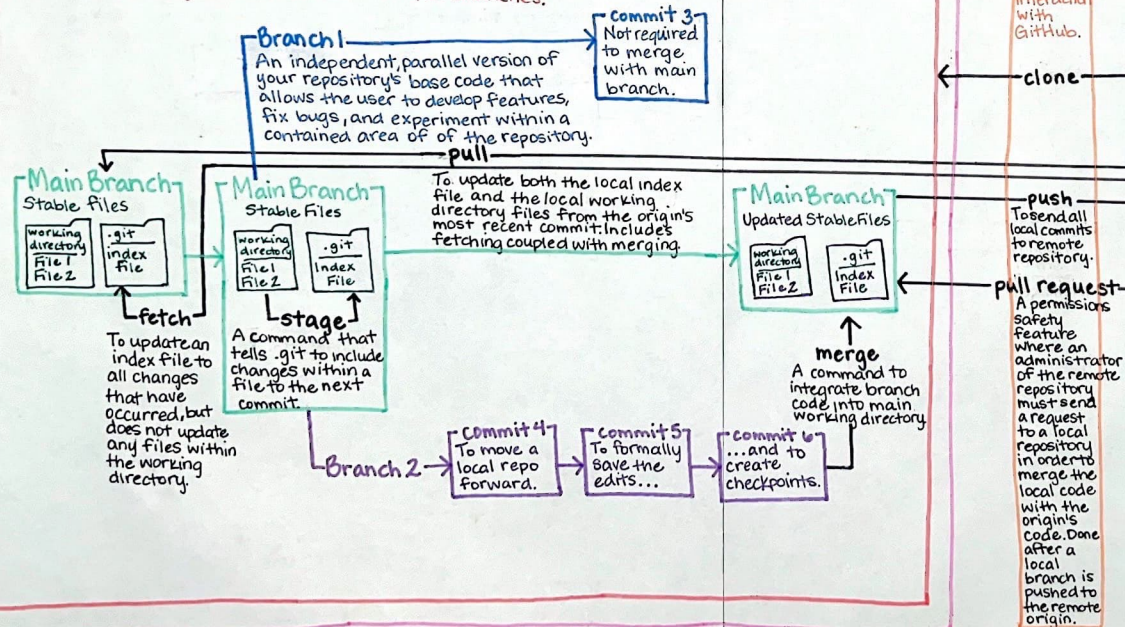 interaction
with
GitHub.
clone
Branch 1
An independent, parallel version of
your repository's base code that
allows the user to develop features,
fix bugs, and experiment within a
contained area of of the repository.
Commit 3
Not required
to merge
with main
branch.
pull
To update both the local index
file and the local working
directory files from the origin's
most recent commit. Includes
fetching coupled with merging.
Main Branch
Stable files
working
directory
File 1
File 2
.git
index
file
fetch
To update an
index file to
all changes
that have
occurred, but
does not update
any files within
the working
directory.
Main Branch
Stable Files
working
directory
File 1
File 2
.git
Index
File
stage
A command that
tells .git to include
changes within a
file to the next
commit.
Main Branch
Updated Stable Files
working
directory
File 1
File 2
.git
Index
File
merge
A command to
integrate branch
code into main
working directory
Branch 2
Commit 4
To move a
local repo
forward.
Commit 5
To formally
save the
edits...
Commit 6
...and to
create
checkpoints.
push
To send all
local commits
to remote
repository.
pull request
A permissions
safety
feature
where an
administrator
of the remote
repository
must send
a request
to a local
repository
in order to
merge the
local code
with the
origin's
code. Done
after a
local
branch is
pushed to
the remote
origin.